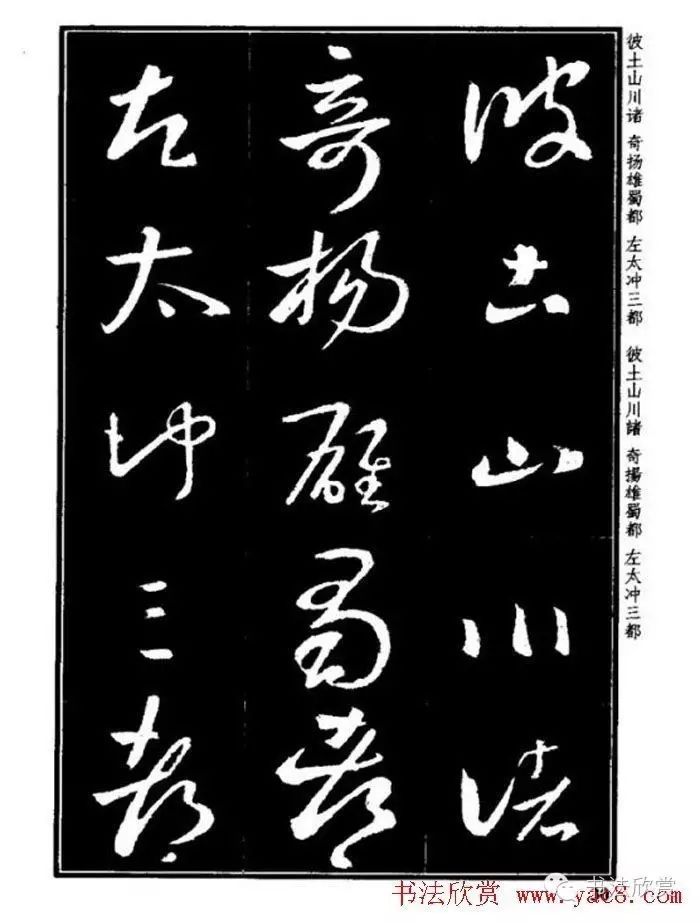 彼土山川诸
奇扬雄蜀都
左太冲三都
彼土山川诸 奇扬雄蜀都 左太冲三都 彼土山川諸 奇揚雄蜀都 左太冲三都
书法欣赏 www.yac8.com
书法欣赏